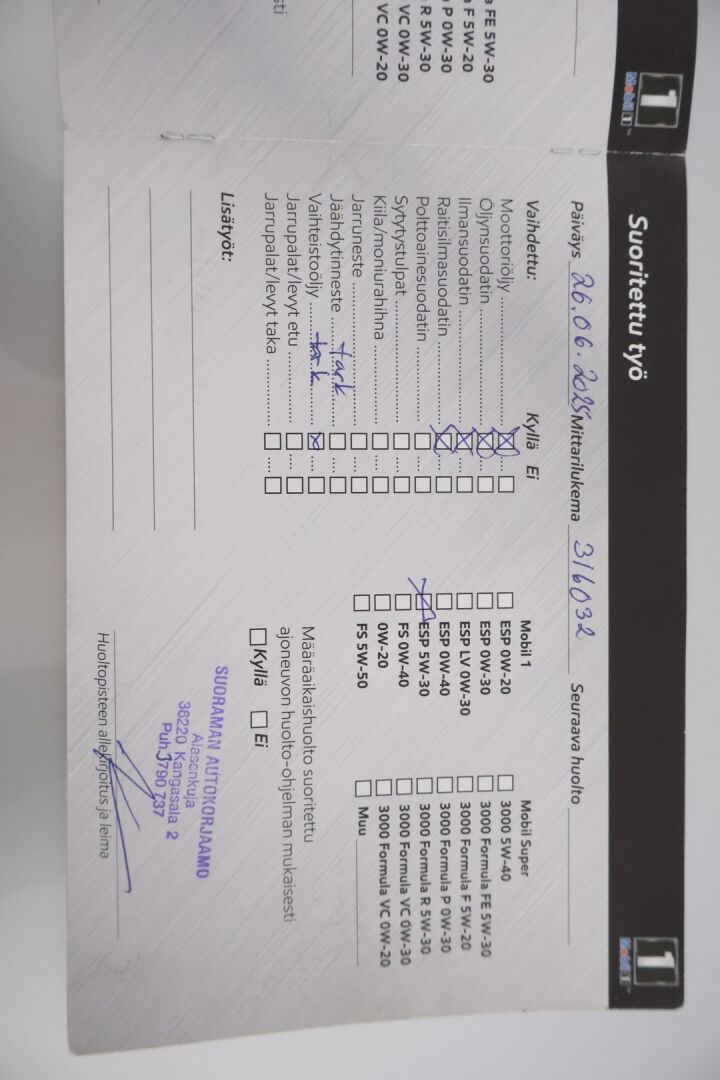 FE 5W-30
F 5W-20
P 0W-30
R 5W-30
VC 0W-30
VC 0W-20
sti
1
Mobil 1
Suoritettu työ
1
Mobil 1
Päiväys 26.06.2025 Mittarilukema 316032 Seuraava huolto
Vaihdettu: Kyllä Ei
Moottoriöljy
Öljynsuodatin
Ilmansuodatin
Raitisilmasuodatin
Polttoainesuodatin
Sytytystulpat
Kiila/moniurahihna
Jarruneste
Jäähdytinneste tark
Vaihteistoöljy tark
Jarrupalat/levyt etu
Jarrupalat/levyt taka
Lisätyöt:
Mobil 1
ESP 0W-20
ESP 0W-30
ESP LV 0W-30
ESP 0W-40
ESP 5W-30
FS 0W-40
0W-20
FS 5W-50
Mobil Super
3000 5W-40
3000 Formula FE 5W-30
3000 Formula F 5W-20
3000 Formula P 0W-30
3000 Formula R 5W-30
3000 Formula VC 0W-30
3000 Formula VC 0W-20
Muu
Määräaikaishuolto suoritettu
ajoneuvon huolto-ohjelman mukaisesti
Kyllä Ei
SUORAMAN AUTOKORJAAMO
Alasenkuja
36220 Kangasala 2
Puh. 3790 737
Huoltopisteen allekirjoitus ja leima